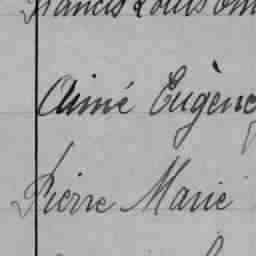 Francis Louis
Aimé Eugène
Pierre Marie